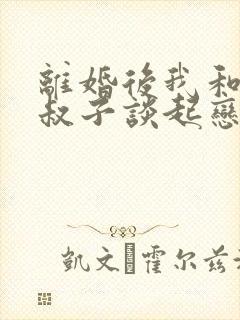 離婚後我和
叔子談起戀
凱文·霍尔兹